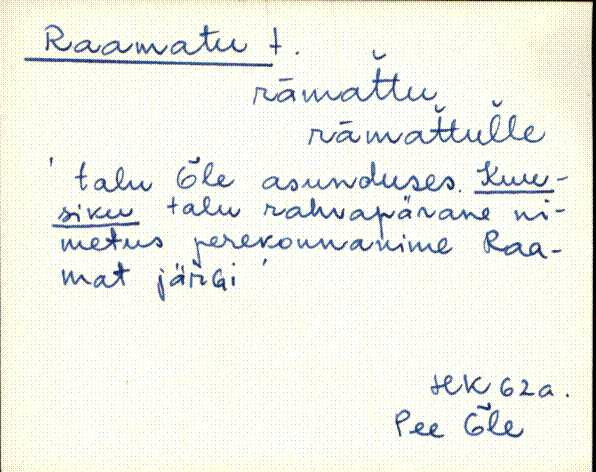 Raamatu t.
rāmat̆tu
rāmat̆tul̆le
' talu Õle asunduses. Kuu-
siku talu rahvapärane ni-
metus perekonnanime Raa-
mat järgi '
HK 62a.
Pee Õle